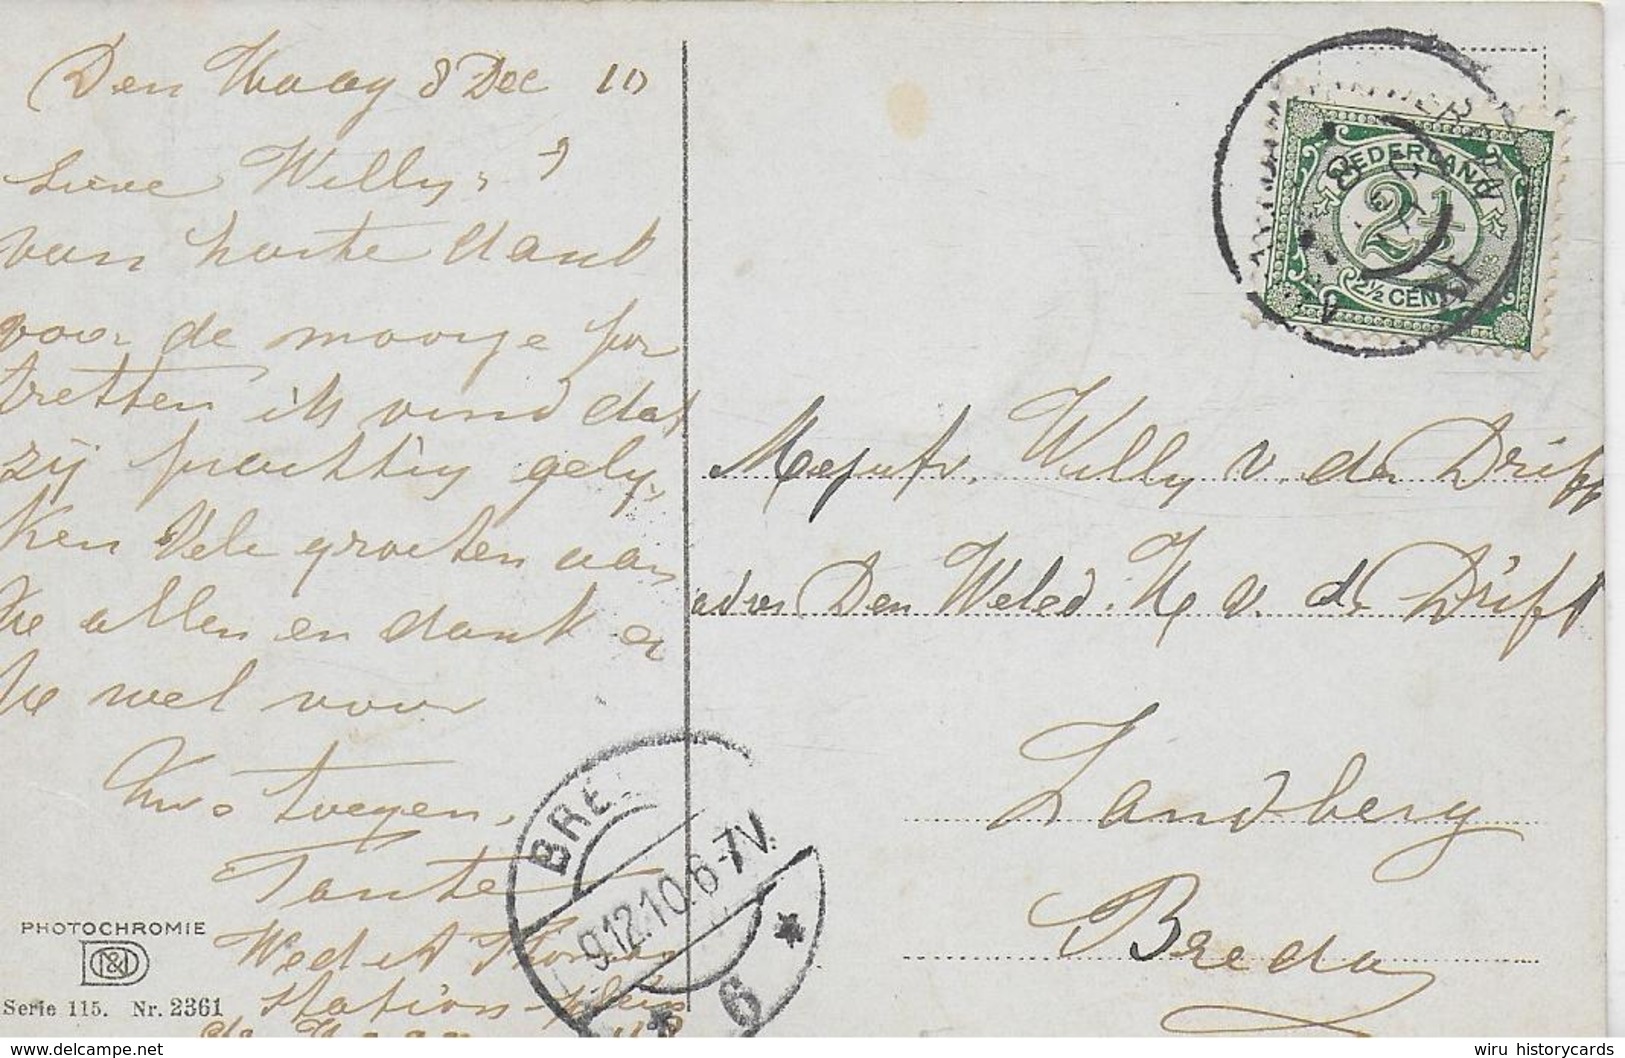 Den Haag 8 Dec 10
Lieve Willy,
van harte dank
voor de mooije por
tretten ik vind dat
zij prachtig gely,
ken Vele groeten van
We allen en dank er
We wel voor
toegen,
Tante
Wed
Station-plein
PHOTOCHROMIE
N&D
Serie 115. Nr. 2361
NEDERLAND
2½
2½ CENT
Mejufr. Willy v. der Drift
adres Den Weled. H v. d. Drift
Zandberg
Breda
BRE
9.12.10.6-7V.
6
wiru historycards